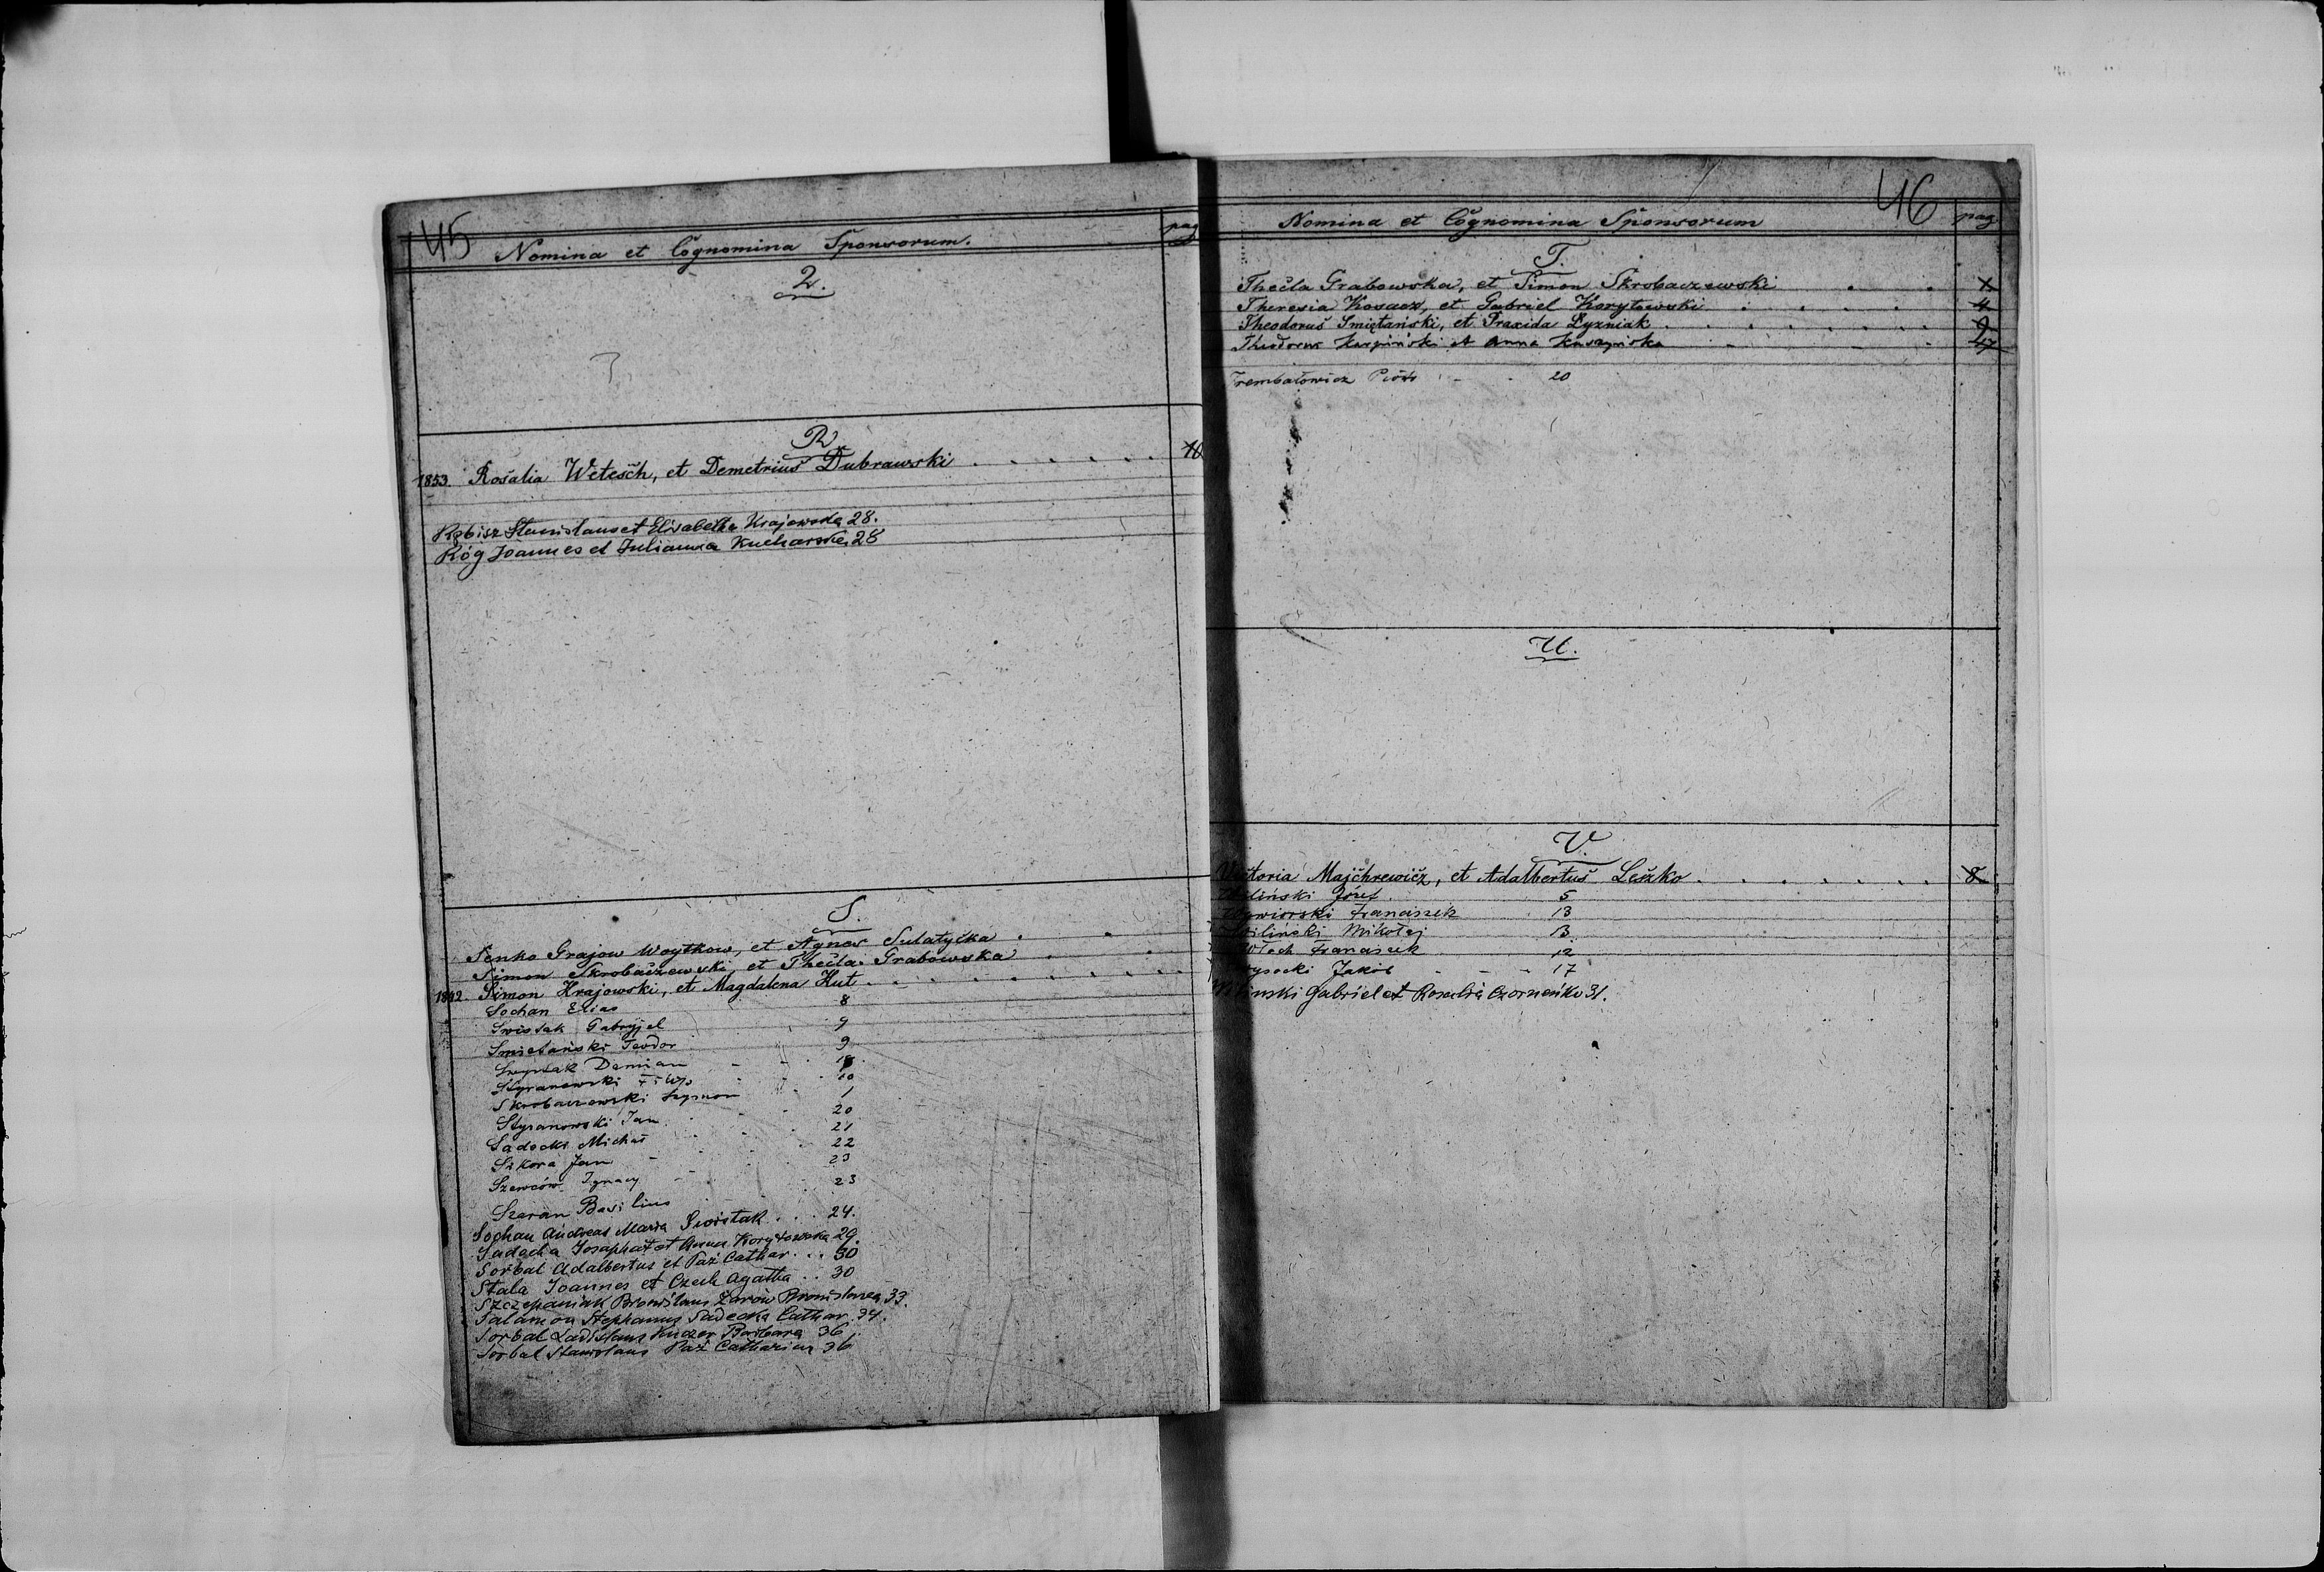 45 Nomina et Cognomina Sponsorum. pag
Q.
R
1853. Rosalia Wetesch, et Demetrius Dubrawski . . . . . . 10
Rębisz Stanislaus et Elisabetha Krajewska 28.
Róg Joannes et Julianna Kucharska 28
S.
Senko Grajow Woytkow, et Agnes Sulatycka
Simon Skrobaczewski, et Thecla Grabowska
1842 Simon Krajowski, et Magdalena Kut
Sochan Elias 8
Swistak Gabryjel 9
Smietański Teodor 9
Swystak Demian
Styranowski Filip 10
Skrobaczewski Szymon 1
Styranowski Jan 20
Sadecki Michał 21
Sikora Jan 22
Szewców Ignacy 23
Szeran Basilius 23
Sochan Andreas Maria Swistak . . . 24.
Sadecka Josaphat et Anna Korytowska 29.
Sorbal Adalbertus et Paź Cathar . . . 30
Stala Joannes et Czech Agatha . . 30
Szczepaniak Bronislaus Żarów Bronislawa 33.
Salamon Stephanus Sadecka Cathar. 34.
Sorbal Ladislaus Kuczer Barbara 36
Sorbal Stanislaus Paź Catharina 36
Nomina et Cognomina Sponsorum 46 pag
T.
Thecla Grabowska, et Simon Skrobaczewski 1
Theresia Kosacz, et Gabriel Korytowski 4
Theodorus Smiętański, et Praxida Łyzniak 9
Theodorus Karpiński et Anna Kaszyńska 17
Trembatowicz Piotr 20
U.
V.
Victoria Majchrewicz, et Adalbertus Leszko 8
Wiliński Józef 5
Franciszek 13
Wiliński Mikołaj 13
Włoch Franciszek 12
Wysocki Jakób 17
Wilinski Gabriel et Rosalia Czorneńka 31.